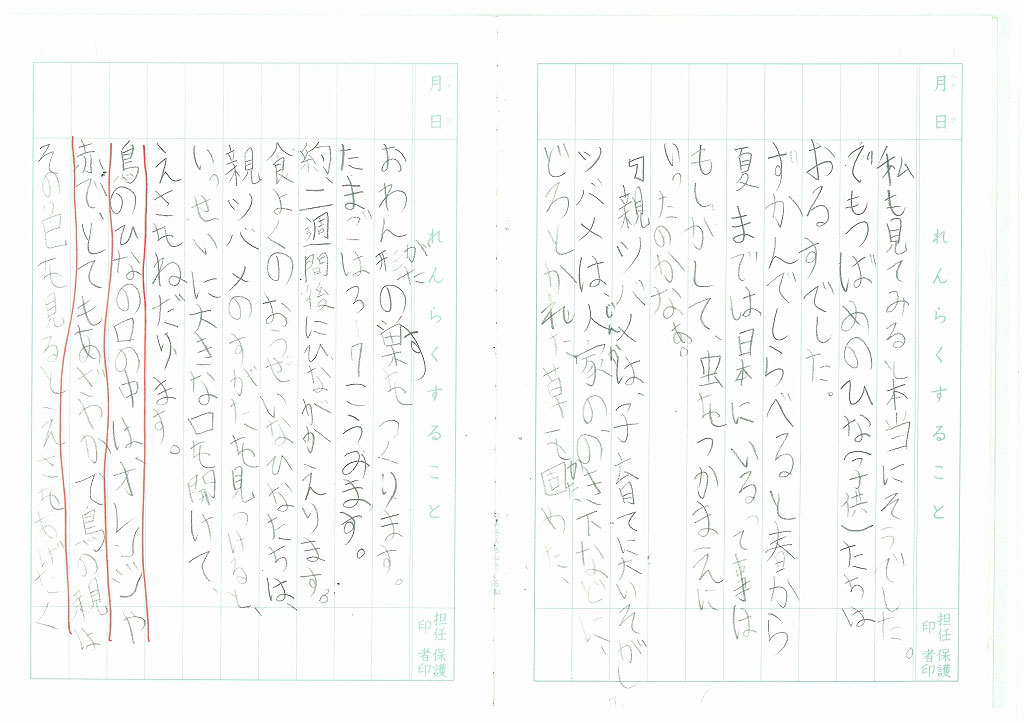 月 日
れんらくすること
担任印
保護者印
私も見てみると本当にそうでした。
でもつばめのひな(子供)たちは
おるすでした。
ずかんでしらべると春から
夏までは日本にいるって事は
もしかして、虫をつかまえに
いったのかなぁ。
親ツバメは、子育てに大いそがし
ツバメは人家ののき下などに、
どろとかれた草を固めた、
月 日
れんらくすること
担任印
保護者印
おわん形の巣をつくります。
がた
す
たまごは3~7こうみます。
約、二週間後にひながかえります。
食よくのおうせいなひなたちは、
親ツバメのすがたを見つけると、
いっせいに大きな口を開けて、
えさをねだります。
鳥のひなの口の中は、オレンジや
赤で、とてもあざやかで鳥の親は
その色を見るとえさをあげたく